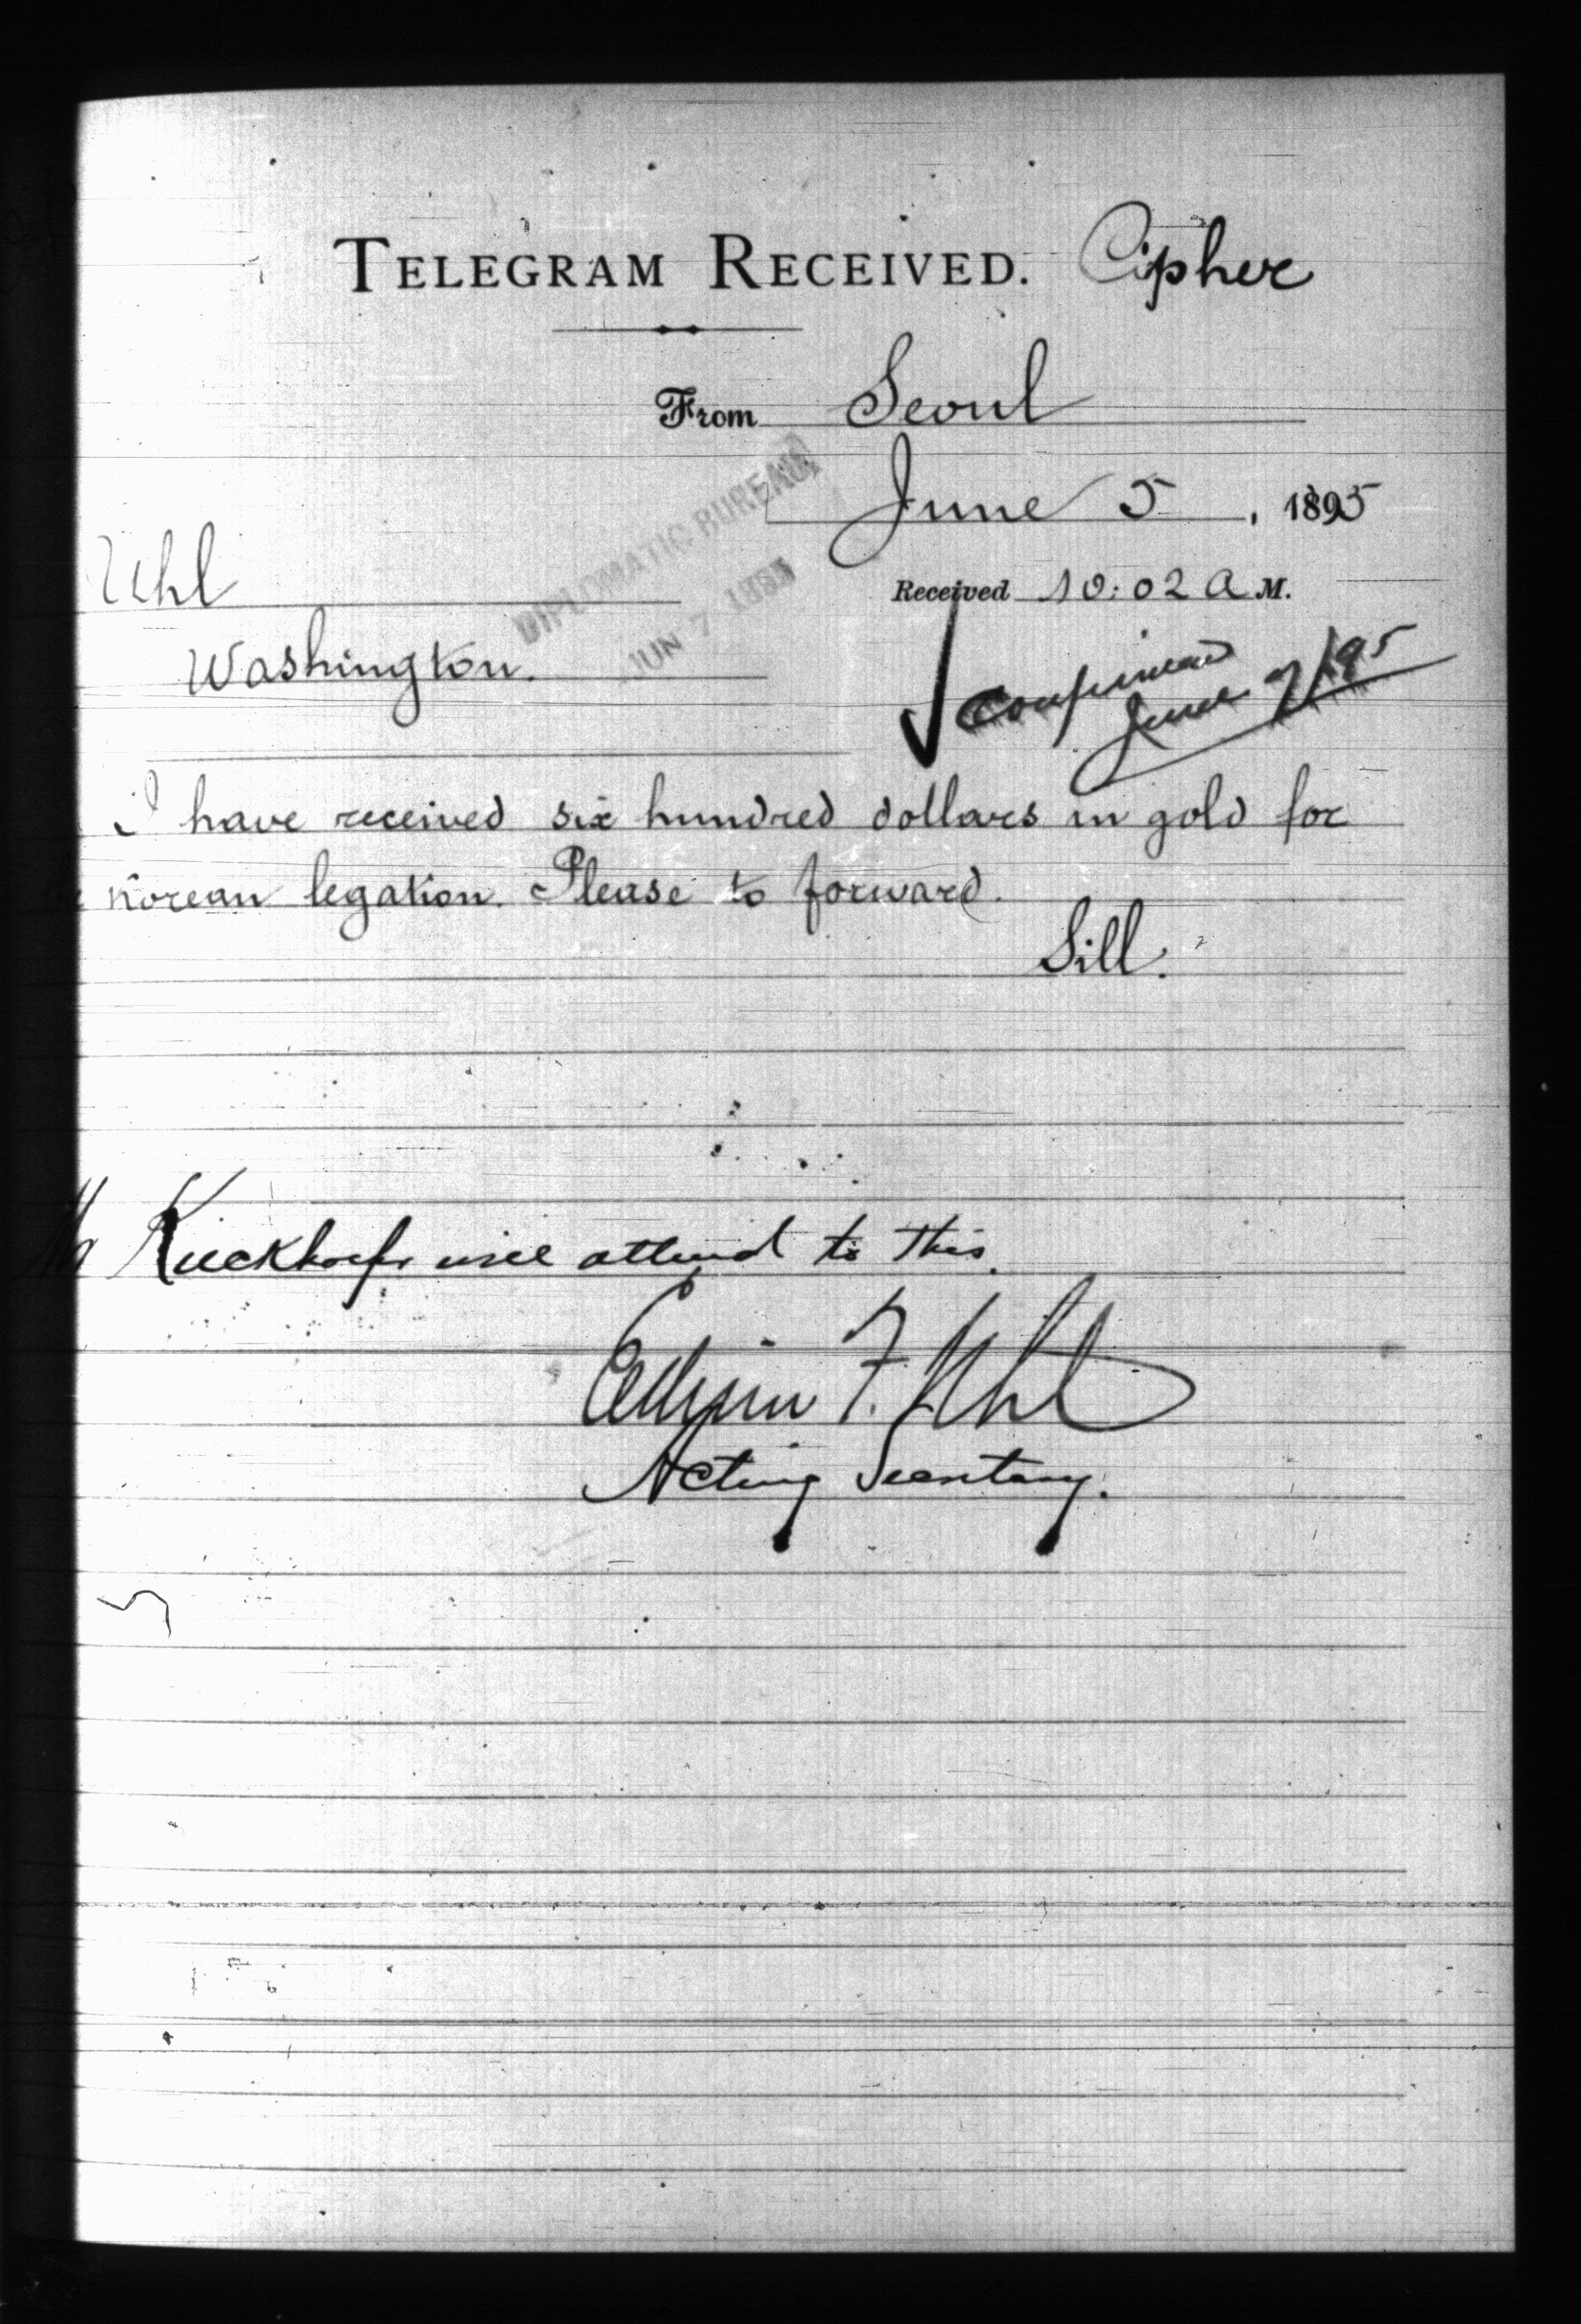 TELEGRAM RECEIVED. Cipher
From Seoul
June 5, 1895
DIPLOMATIC BUREAU
JUN 7 1895
Uhl
Received 10:02 A M.
Washington.
Confirmed
June 7/95
I have received six hundred dollars in gold for
the Korean legation. Please to forward.
Sill.
Mr Kieckhoefer will attend to this.
Edwin F. Uhl
Acting Secretary.